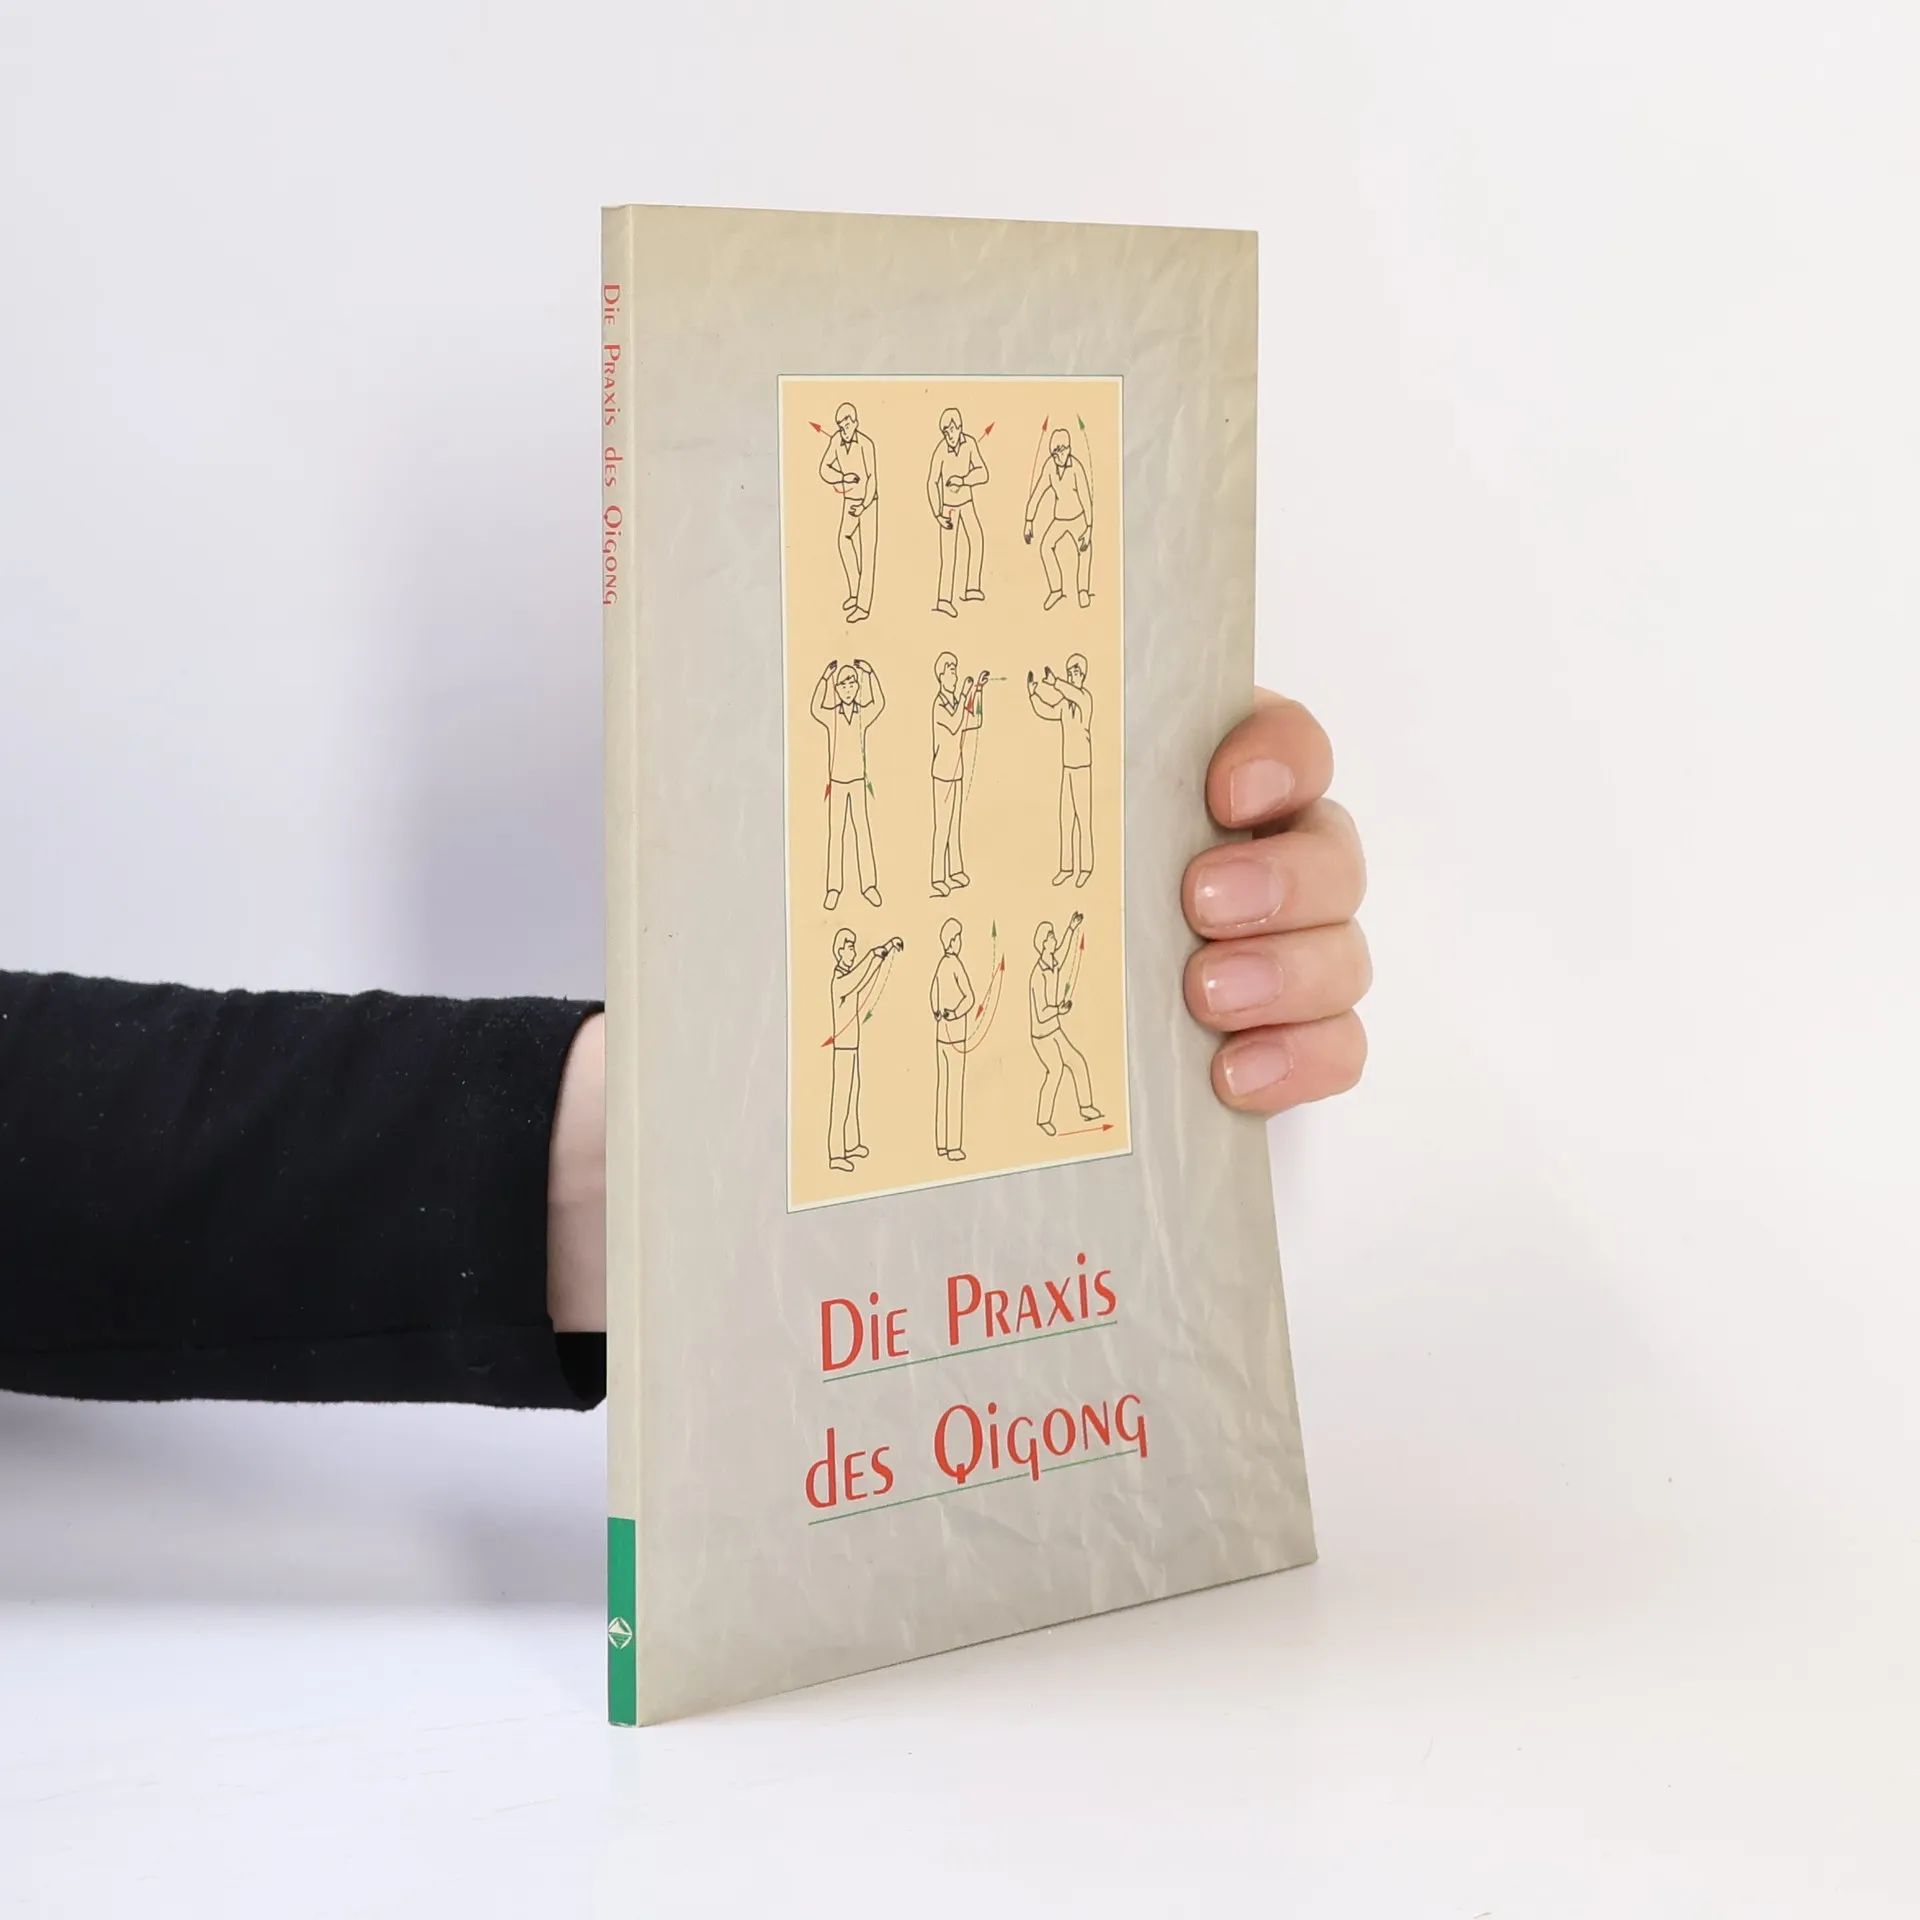 Die Praxis des Qigong
Die Praxis
des Qigong